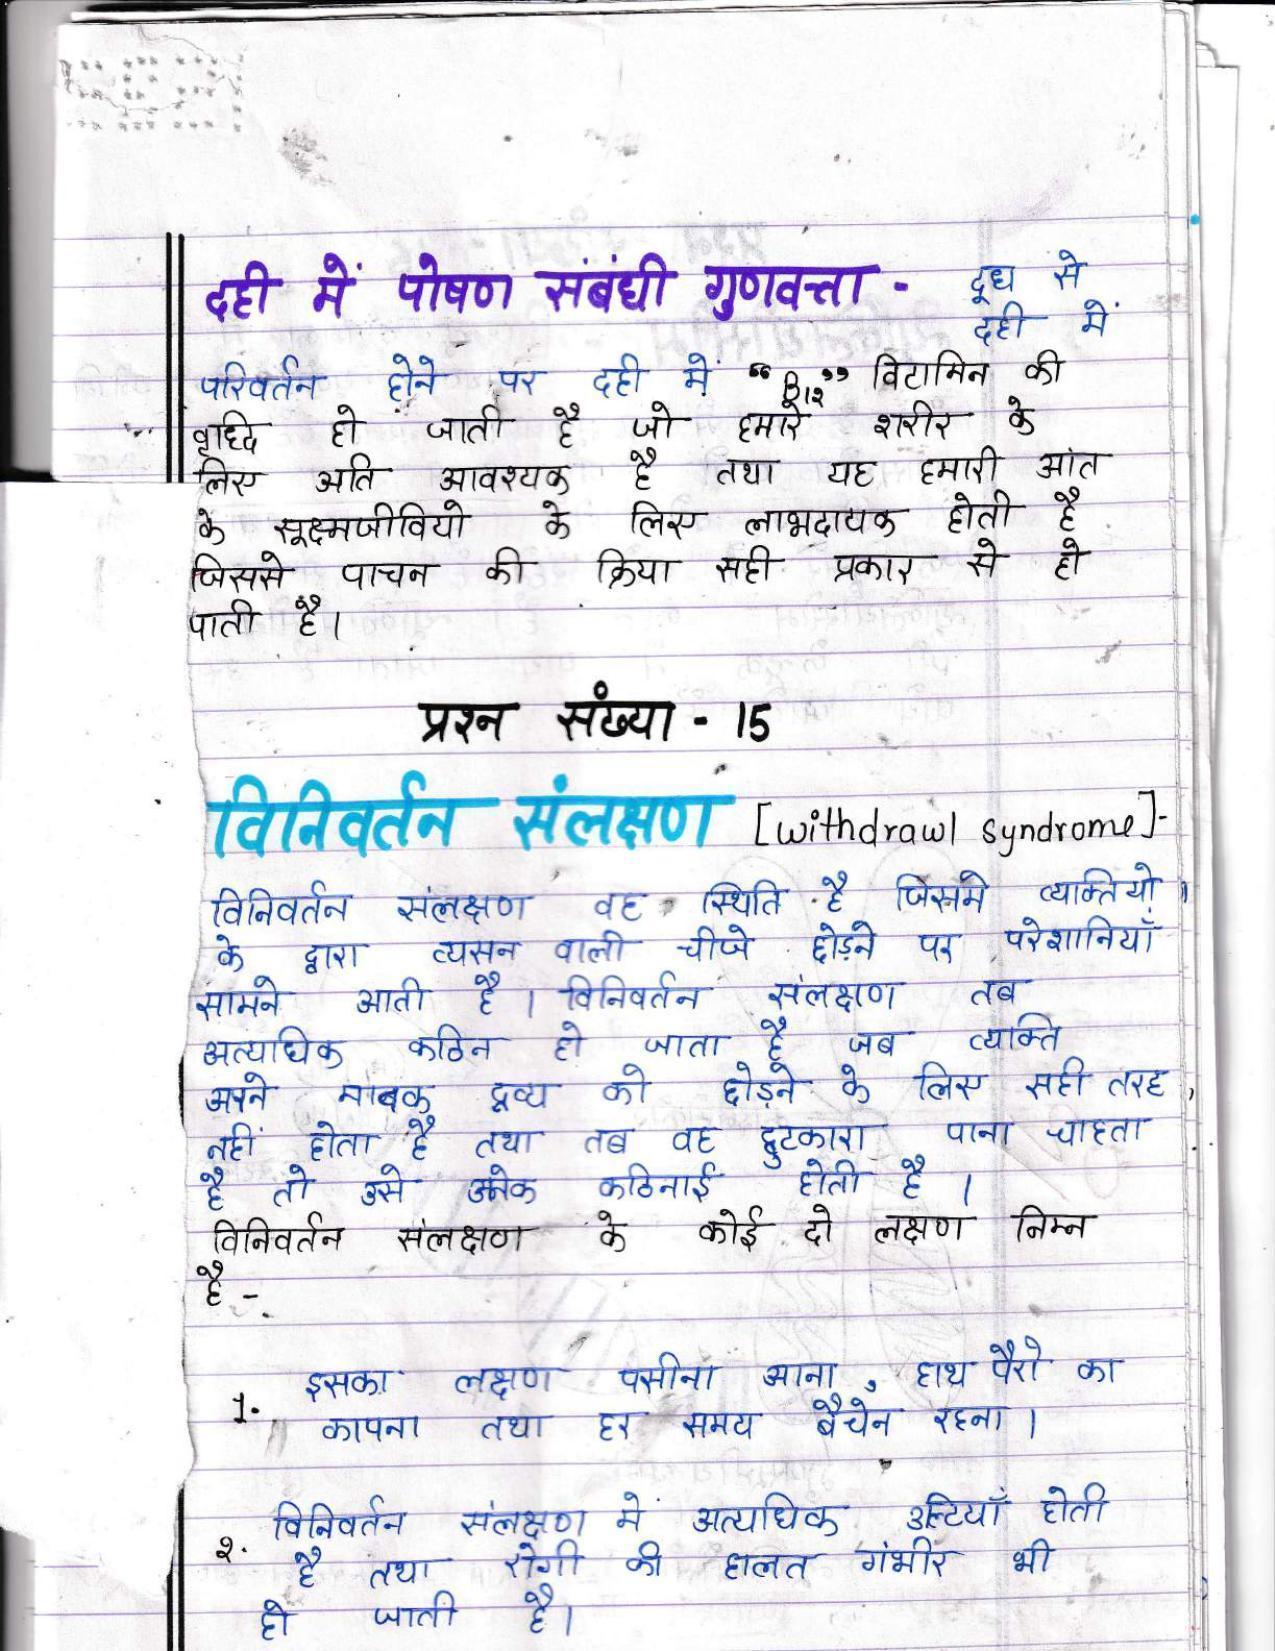 दही में पोषण संबंधी गुणवत्ता - दूध से
दही में
परिवर्तन होने पर दही में "B12" विटामिन की
वृध्दि हो जाती है जो हमारे शरीर के
लिए अति आवश्यक है तथा यह हमारी आंत
के सूक्ष्मजीवियो के लिए लाभदायक होती है
जिससे पाचन की क्रिया सही प्रकार से हो
पाती है।
प्रश्न संख्या - 15
विनिवर्तन संलक्षण [withdrawl syndrome]-
विनिवर्तन संलक्षण वह स्थिति है जिसमे व्यक्तियो
के द्वारा व्यसन वाली चीजे छोड़ने पर परेशानियाँ
सामने आती है। विनिवर्तन संलक्षण तब
अत्याधिक कठिन हो जाता है जब व्यक्ति
अपने मादक द्रव्य को छोड़ने के लिए सही तरह
नहीं होता है तथा तब वह छुटकारा पाना चाहता
है तो उसे अनेक कठिनाई होती है।
विनिवर्तन संलक्षण के कोई दो लक्षण निम्न
है -
1. इसका लक्षण पसीना आना, हाथ पैरो का
कापना तथा हर समय बैचेन रहना।
२. विनिवर्तन संलक्षण में अत्याधिक उल्टियाँ होती
है तथा रोगी की हालत गंभीर भी
हो जाती है।